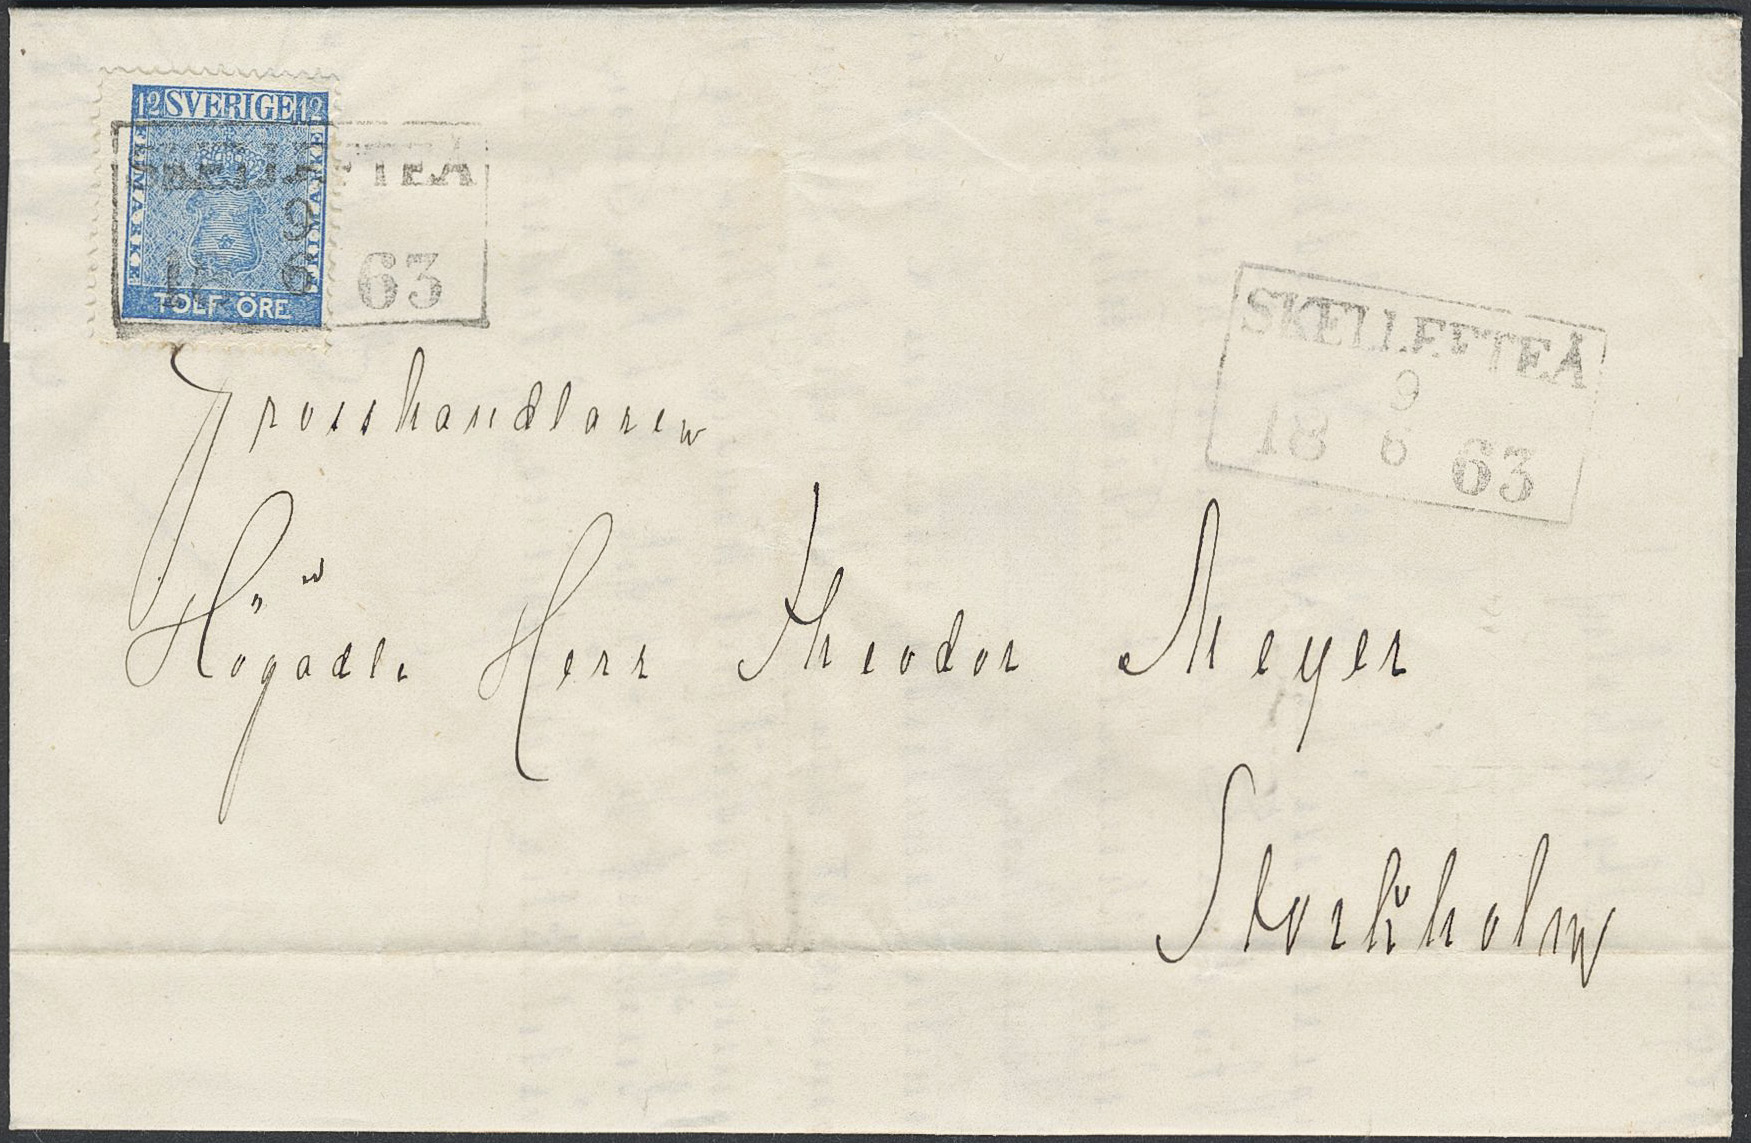 12 SVERIGE 12
FRIMARKE
FRIMARKE
TOLF ÖRE
SKELLEFTEÅ
9
18 6 63
SKELLEFTEÅ
9
18 6 63
Grosshandlaren
Högädle Herr Theodor Meyer
Stockholm